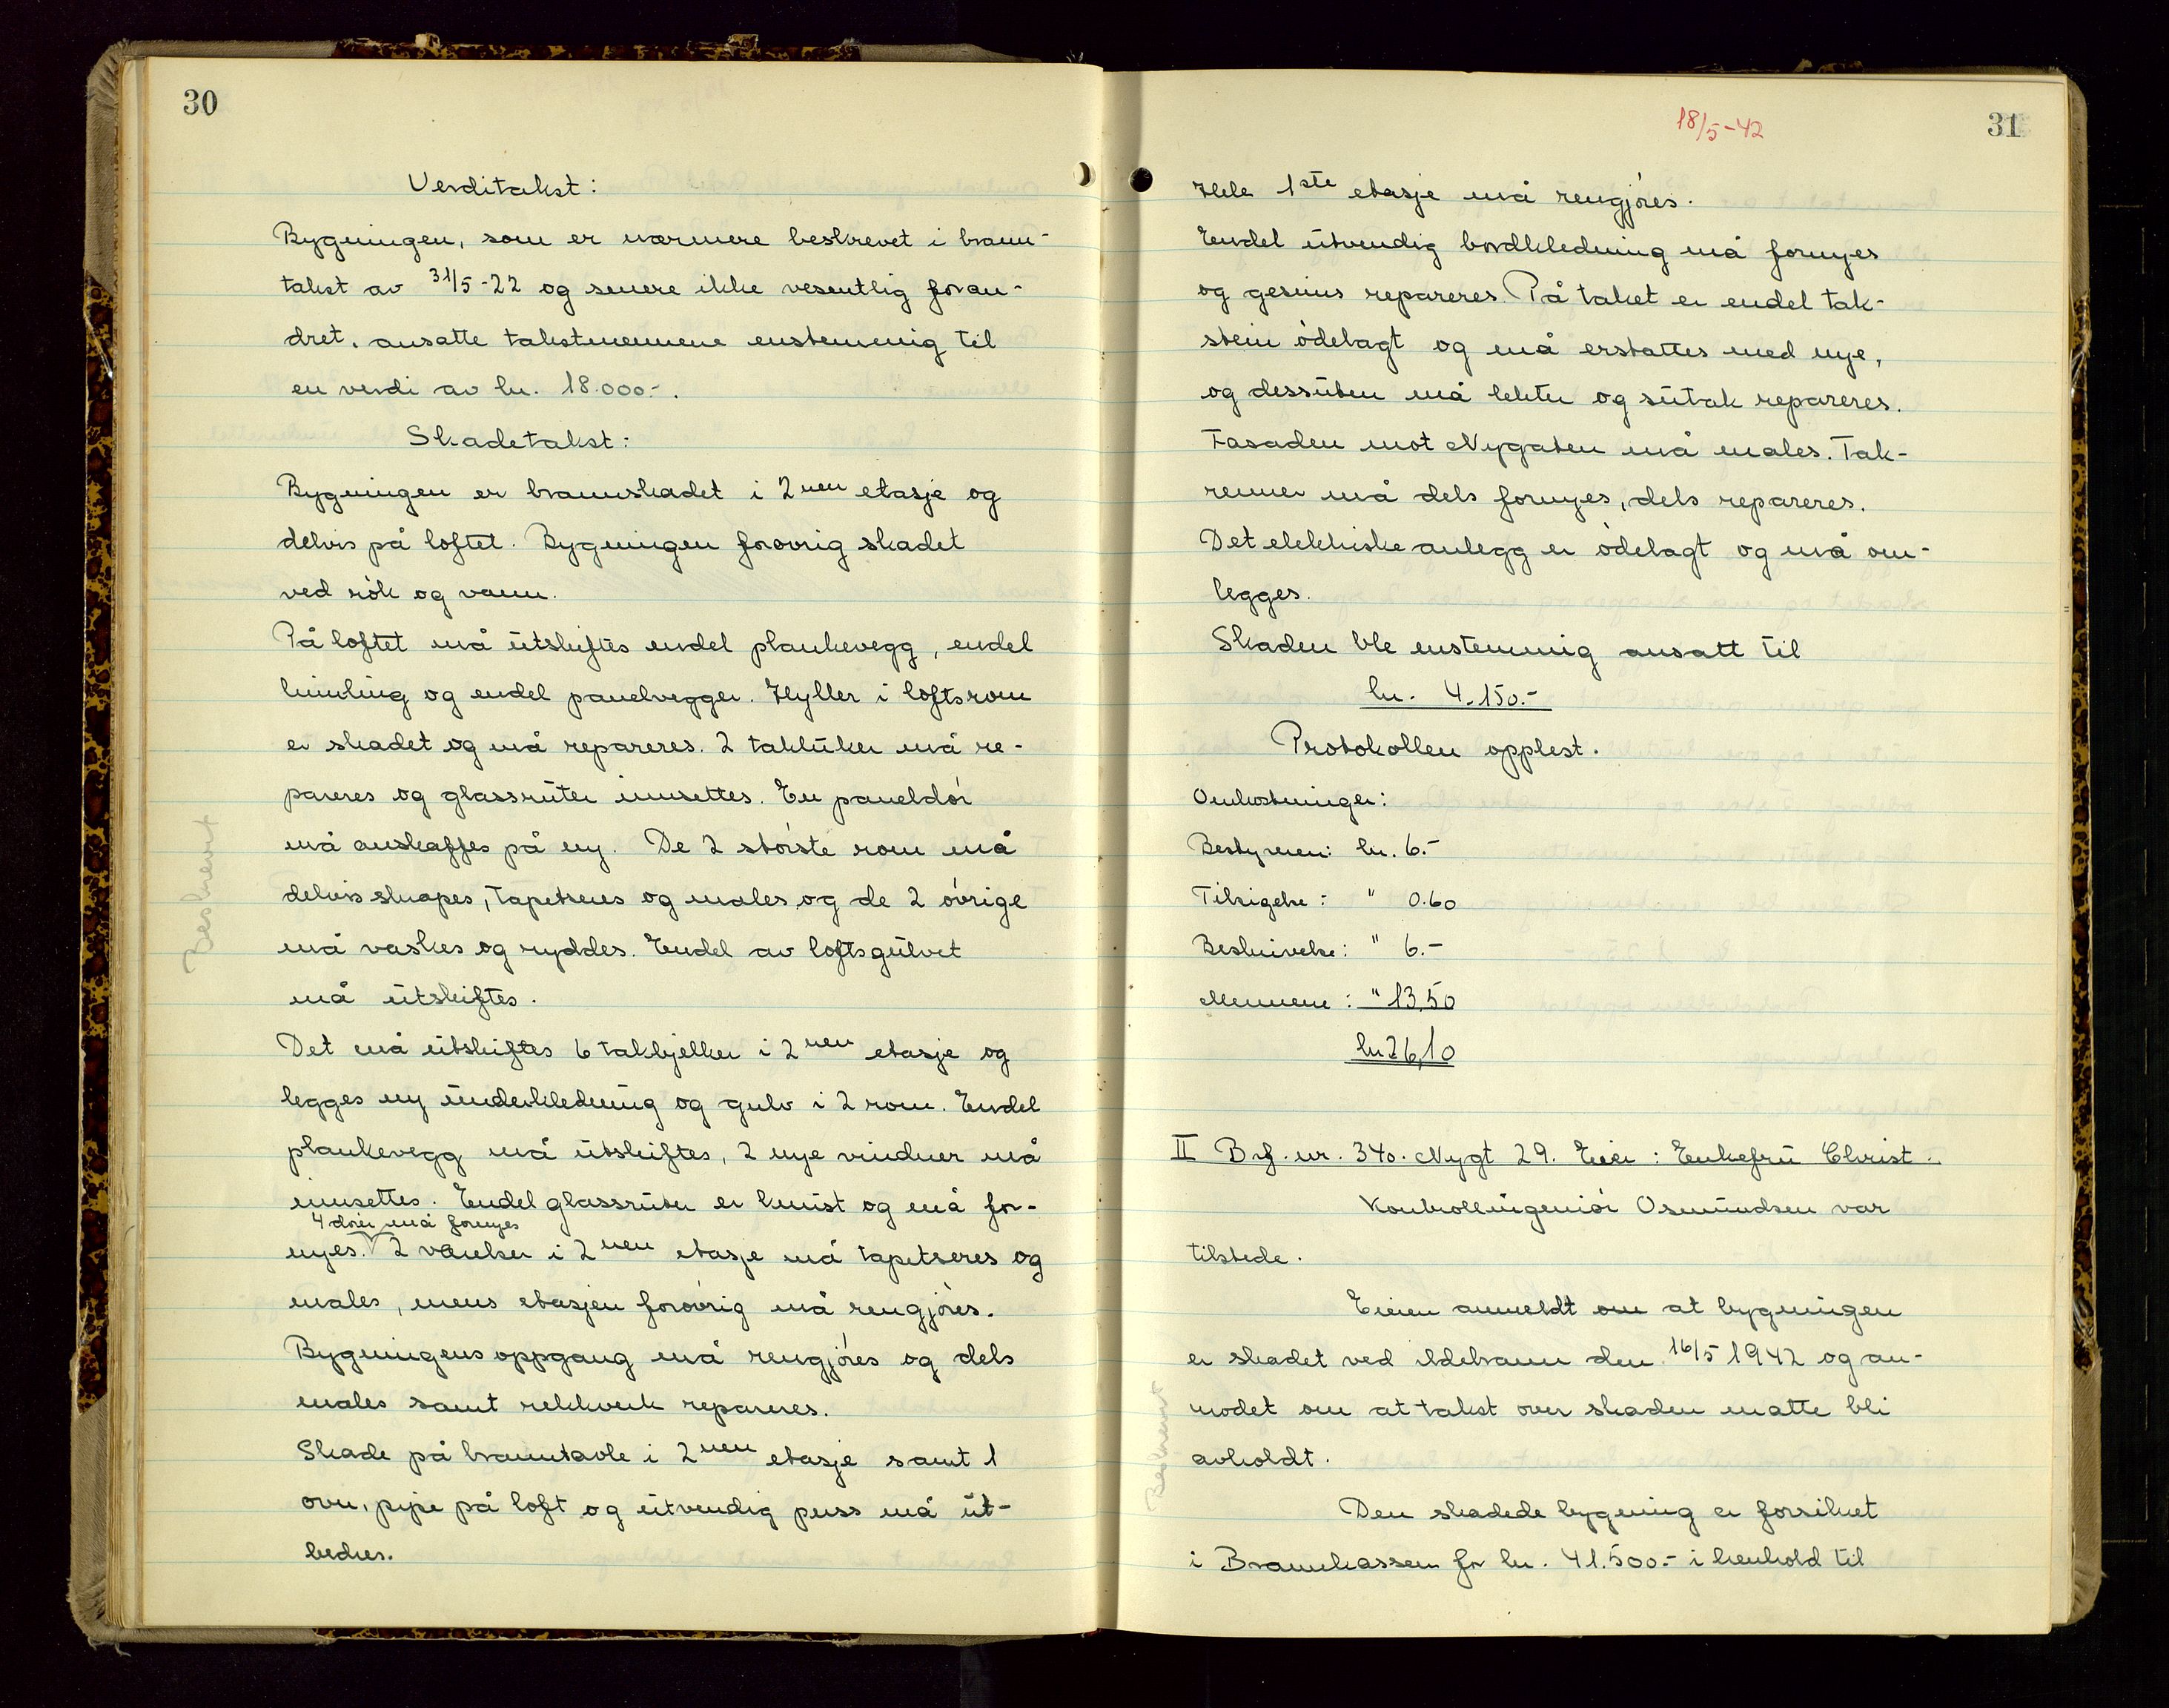 30
Verditakst:
Bygningen, som er nærmere beskrevet i brann-
takst av 31/5-22 og senere ikke vesentlig foran-
dret, ansatte takstmennene enstemmig til
en verdi av kr. 18.000.-.
Skadetakst:
Bygningen er brannskadet i 2nen etasje og
delvis på loftet. Bygningen forøvrig skadet
ved røk og vann.
På loftet må utskiftes endel plankevegg, endel
himling og endel panelvegger. Hyller i loftsrom
er skadet og må repareres. 2 takluker må re-
pareres og glassruter innsettes. En paneldør
må anskaffes på ny. De 2 største rom må
delvis skrapes, tapetseres og males og de 2 øvrige
må vaskes og ryddes. Endel av loftsgulvet
må utskiftes.
Beskrevet
Det må utskiftes 6 takbjelker i 2nen etasje og
legges ny underkledning og gulv i 2 rom. Endel
plankevegg må utskiftes, 2 nye vinduer må
innsettes. Endel glassruter er knust og må for-
4 dører må fornyes
nyes. 2 værelser i 2nen etasje må tapetseres og
males, mens etasjen forøvrig må rengjøres.
Bygningens oppgang må rengjøres og dels
males samt rekkverk repareres.
Skade på branntavle i 2nen etasje samt 1
ovn, pipe på loft og utvendig puss må ut-
bedres.
18/5-42
31
Hele 1ste etasje må rengjøres.
Endel utvendig bordkledning må fornyes
og gesims repareres. På taket er endel tak-
stein ødelagt og må erstattes med nye,
og dessuten må lekter og sutak repareres.
Fasaden mot Nygaten må males. Tak-
renner må dels fornyes, dels repareres.
Det elektriske anlegg er ødelagt og må om-
legges.
Skaden ble enstemmig ansatt til
kr. 4.150.-
Protokollen opplest.
Omkostninger:
Bestyreren: kr. 6.-
Tilsigelse: " 0.60
Beskrivelse: " 6.-
Mennene: " 13,50
kr 26,10
II B.f. nr. 340. Nygt 29. Eier: Enkefru Christ.
Kontrollingeniør Osmundsen var
tilstede.
Eieren anmeldt om at bygningen
er skadet ved ildebrann den 16/5 1942 og an-
modet om at takst over skaden måtte bli
avholdt.
Beskrevet
Den skadede bygning er forsikret
i Brannkassen for kr. 41.500.- i henhold til